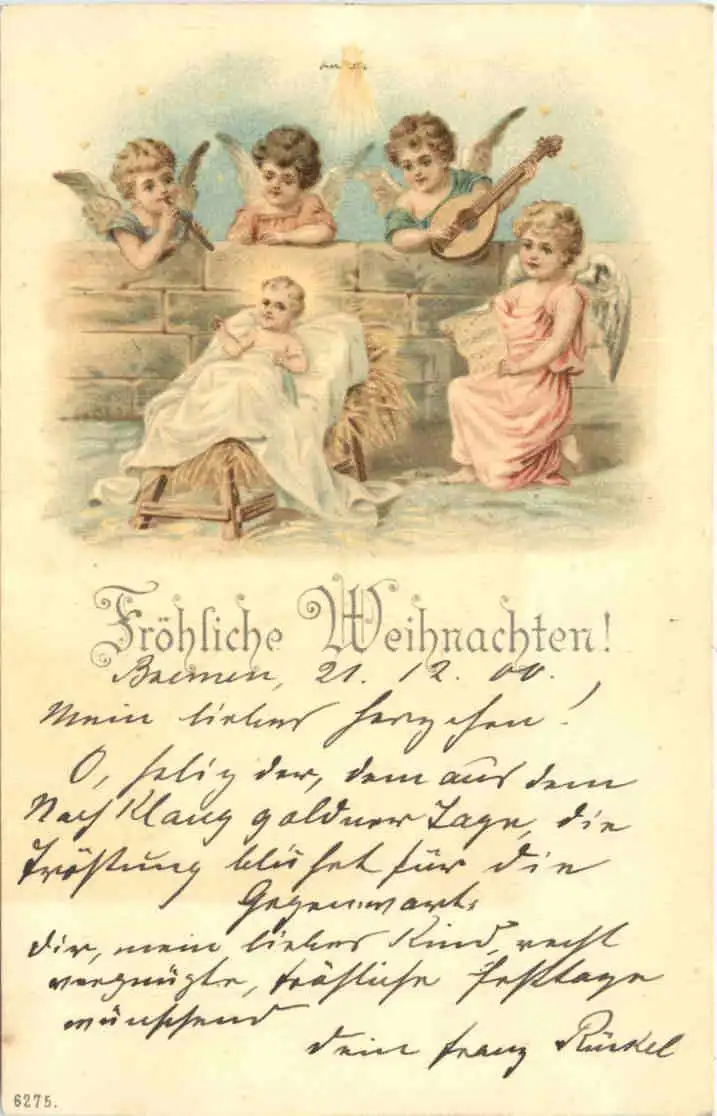 Fröhliche Weihnachten!
Bremen, 21. 12. 00.
Mein liebes Herzchen!
O, selig der, dem aus dem
Nachklang goldner Tage, die
Tröstung blühet für die
Gegenwart.
Dir, mein liebes Kind, recht
vergnügte, fröhliche Festtage
wünschend
dein Franz Rückel
6275.